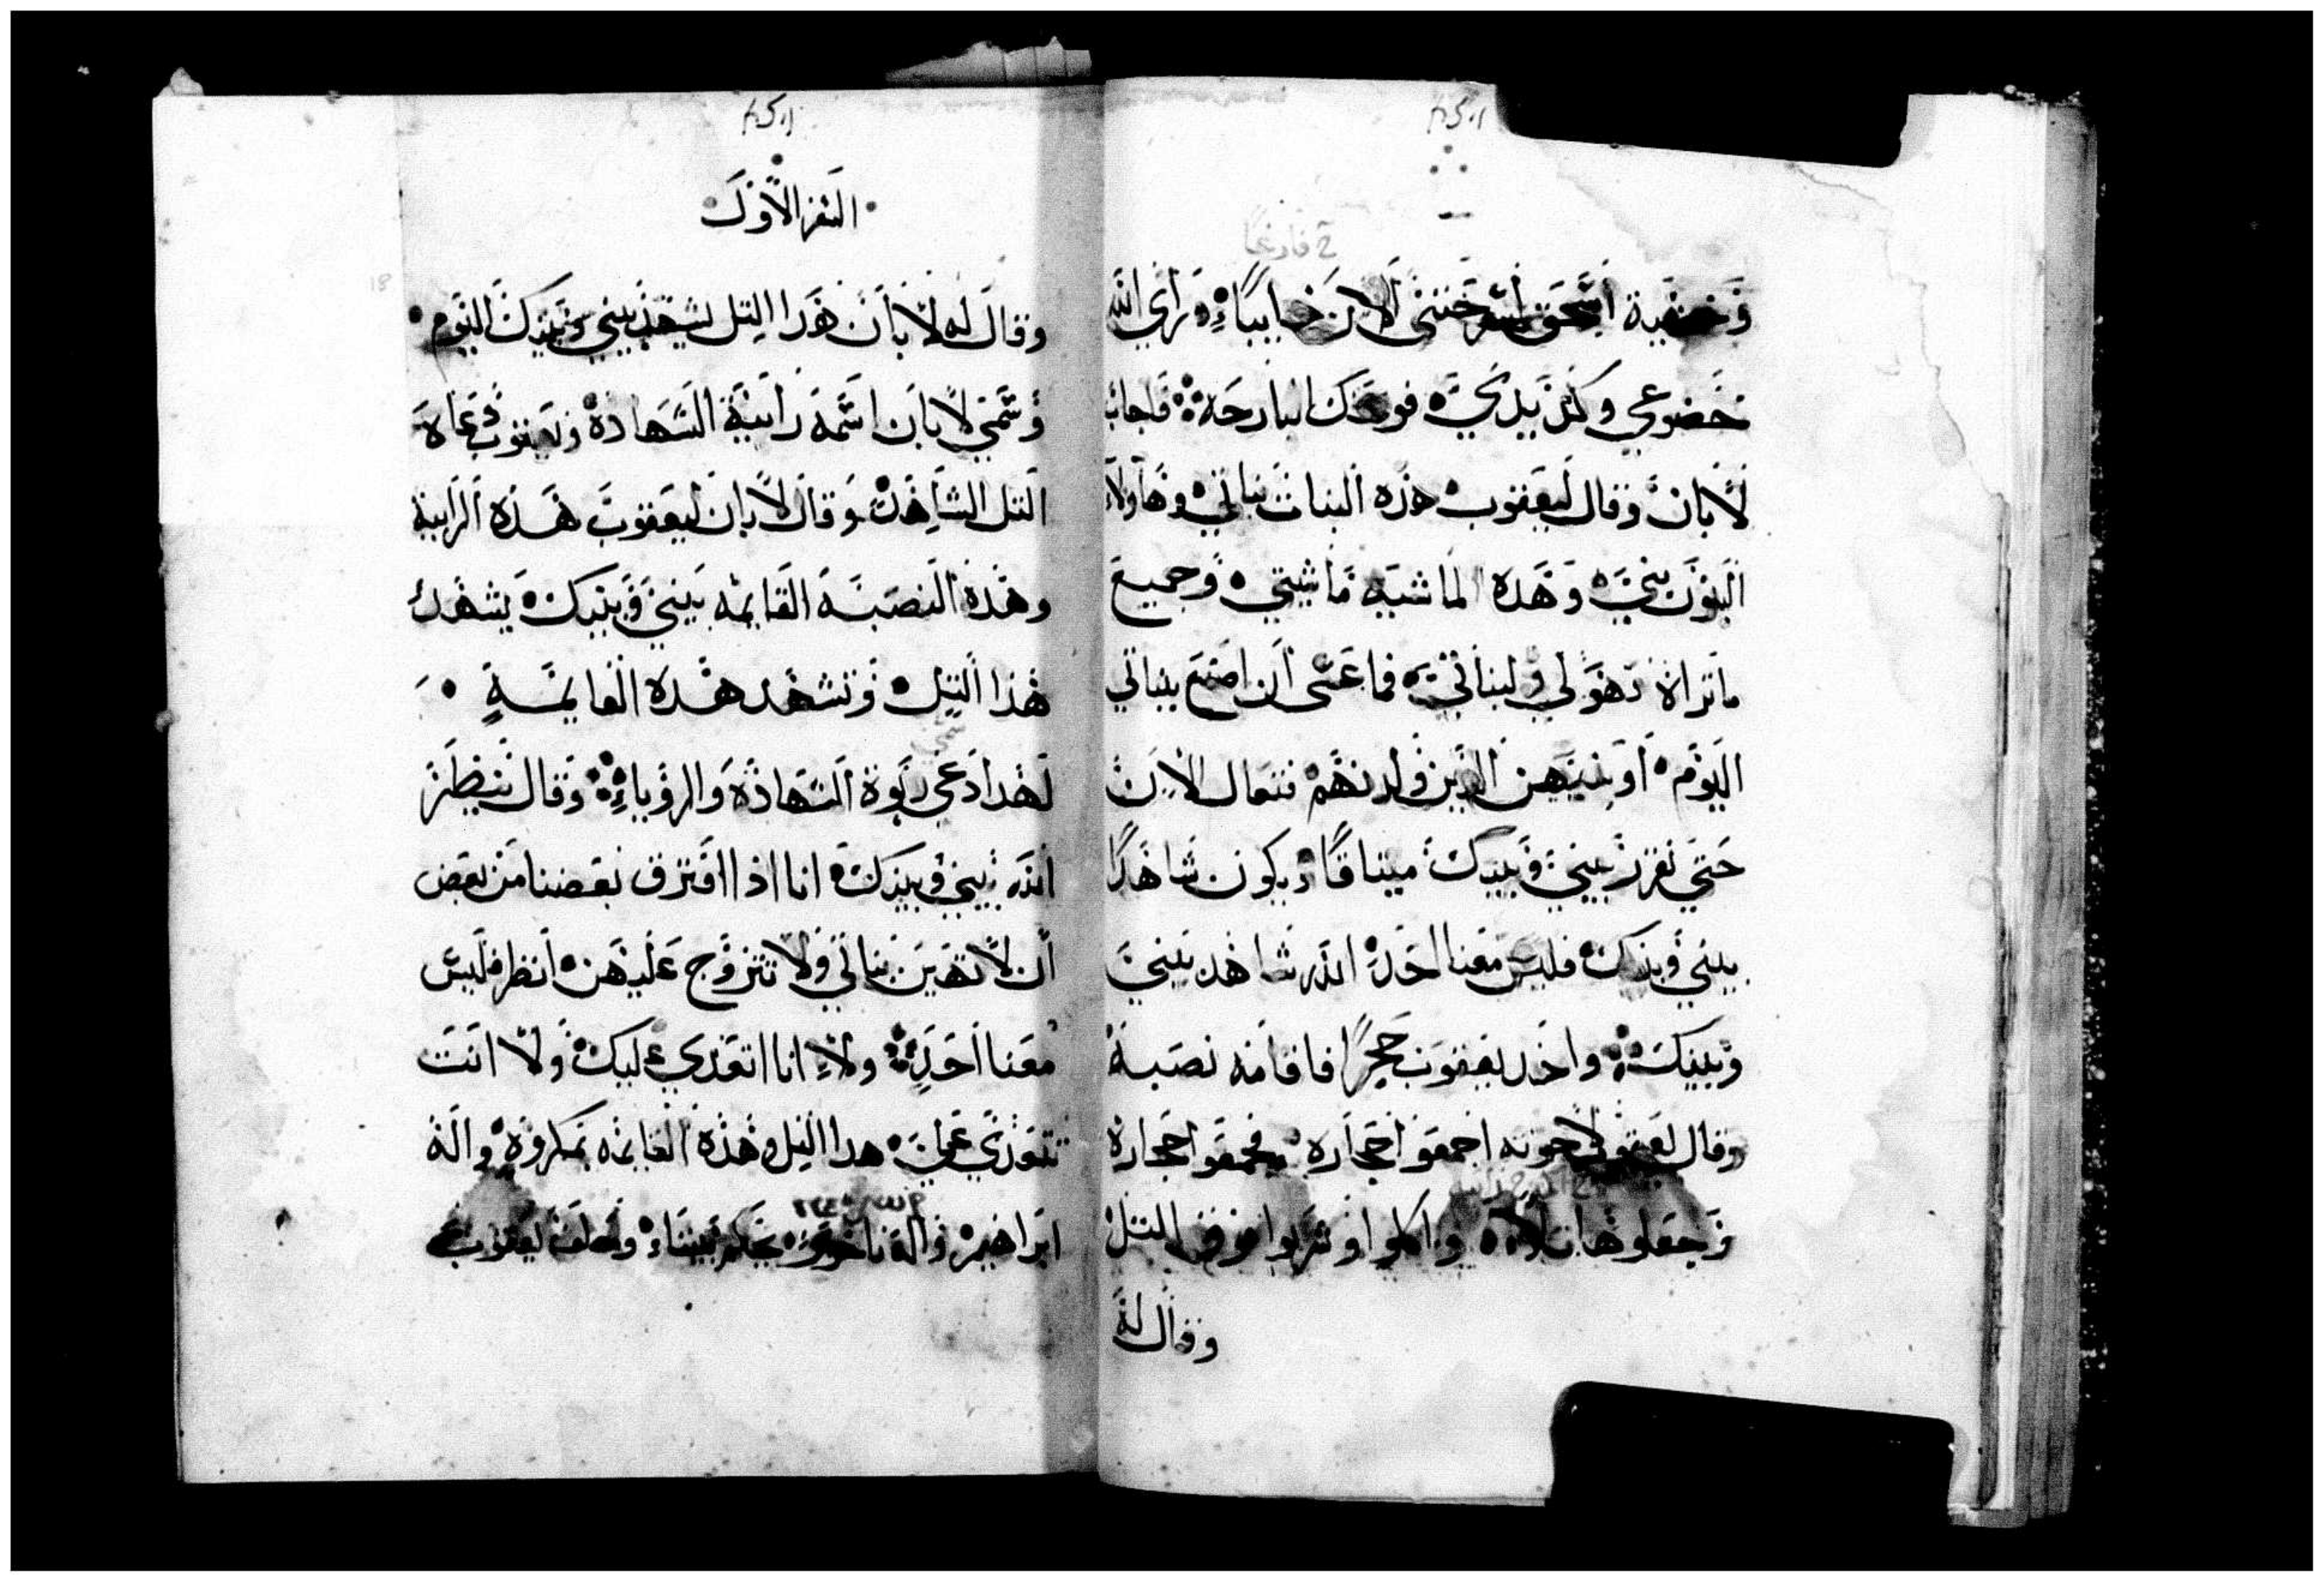 وخشية اسحق لسرحتني الان خايباء ورآي الله
خضوعي وكد يديَّ فوبخك البارحة فاجاب
لابان وقال ليعقوب هذه البنات بناتي وهاولاء
البنون بنيَّ وهده الماشية ماشيتي وجميع
ماتراة فهو لي ولبناتي فما عسى ان اصنع ببناتي
اليوم او ببنيهن الدين ولدنهم فتعال الان
حتى نقرر بيني وبينك ميتاقًا ويكون شاهدًا
بيني وبينك فليس معنا احد الله شاهد بيني
وبينك واخد يعقوب حجرًا فاقامه نصبة
وقال يعقوب لاخوته اجمعوا حجاره فجمعوا حجارة
وجعلوها تلاً واكلوا وشربوا فوق التل
وقال له
السفر الاول
وقال له لابان هدا التل يشهد بيني وبينك اليوم
وسمي لابان اسمه رابية الشهادة ويعقوب دعاه
التل الشاهد وقال لابان ليعقوب هذه الرابية
وهذه النصبة القايمه بيني وبينك يشهد
هذا التل وتشهد هده القايمة
لهدا دعي ربوة الشهادة والروياء وقال ينظر
الله بيني وبينك انا اذا افترق بعضنا من بعض
ان لا تهين بناتي ولا تتزوج عليهن انظر فليس
معنا احد ولا انا اتعدي عليك ولا انت
تتعدي عليَّ هدا التل وهذه القايمه بمكروه واله
ابراهيم واله ناحور يحكم بيننا وحلف يعقوب